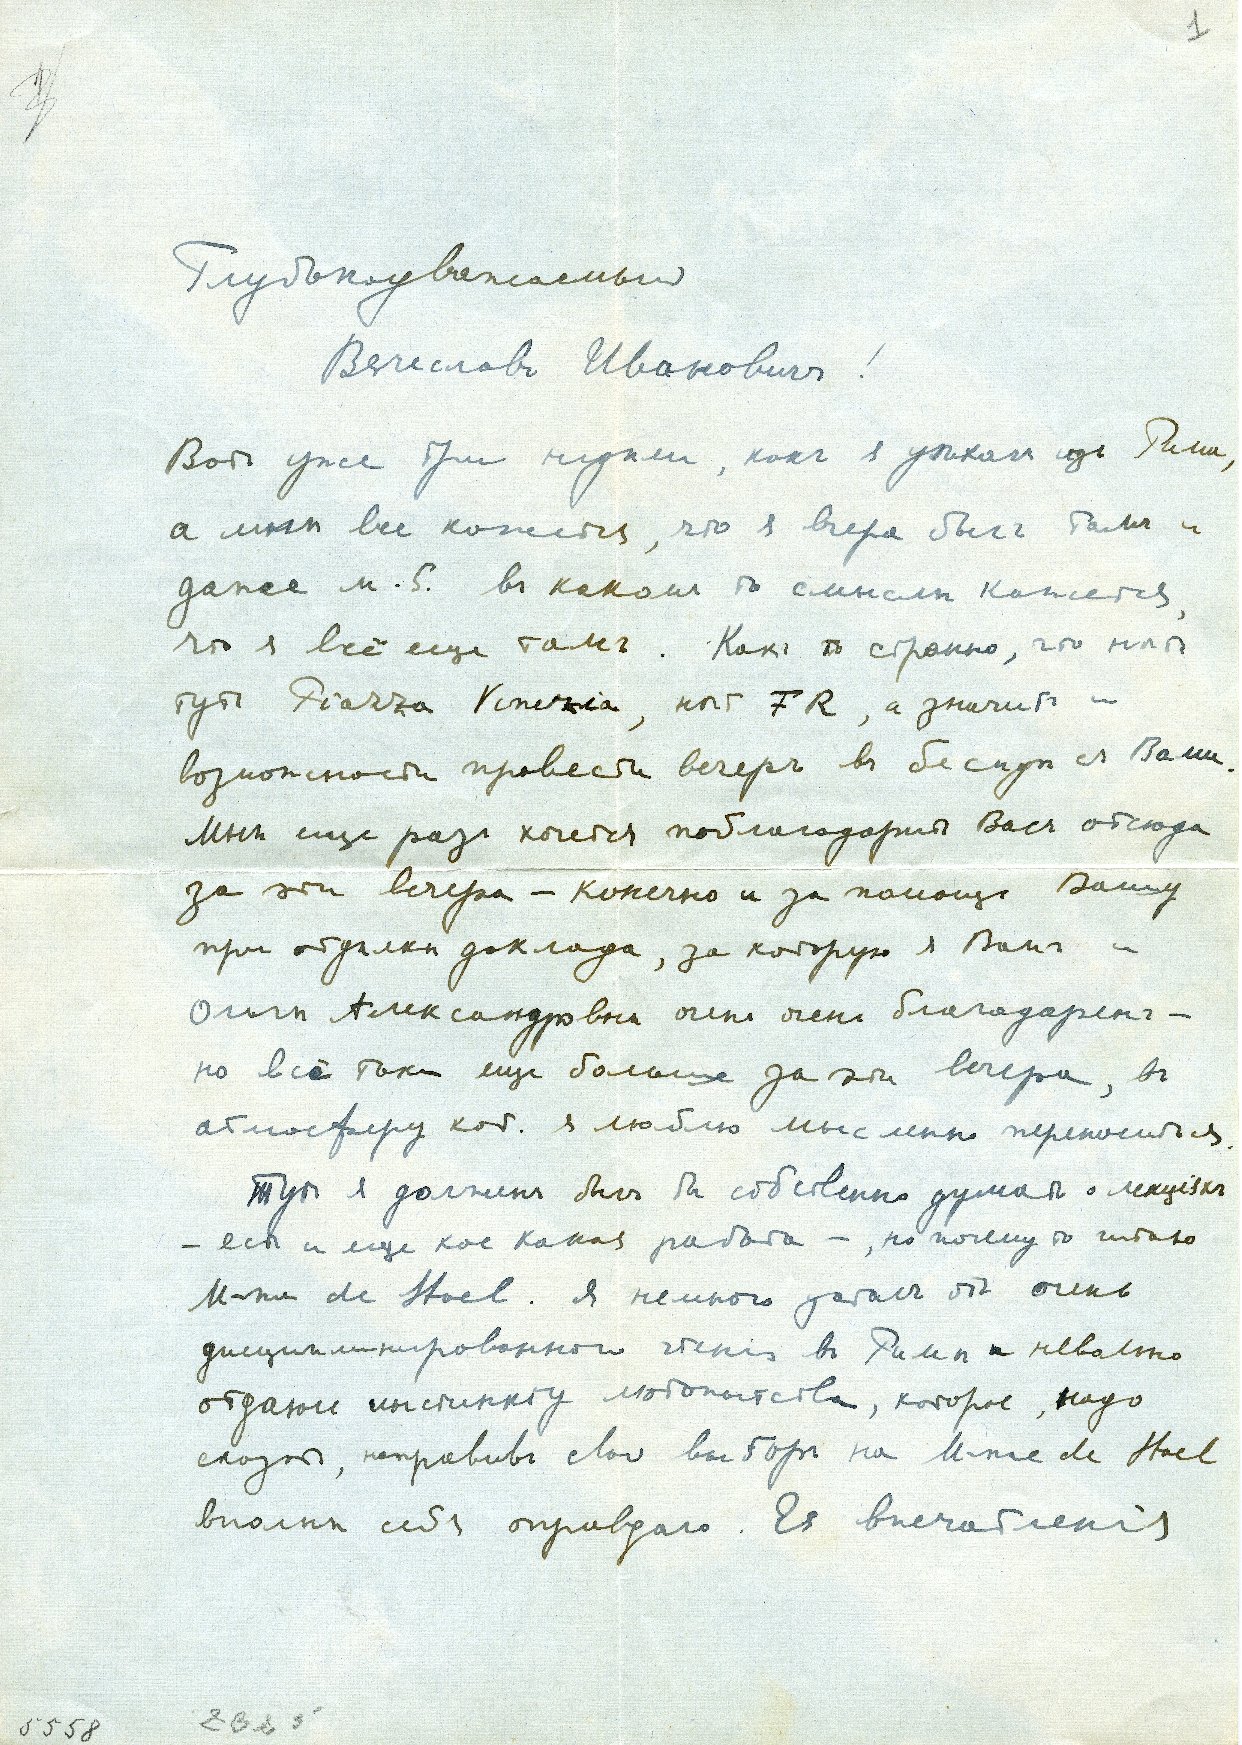 1
Глубокоуважаемый
Вячеславъ Ивановичъ!
Вотъ уже три недѣли, какъ я уѣхалъ изъ Рима,
а мнѣ все кажется, что я вчера былъ тамъ и
даже м.б. въ какомъ то смыслѣ кажется,
что я всё еще тамъ. Какъ то странно, что нѣтъ
тутъ Piazza Venezia, нѣт FR, а значитъ и
возможности провести вечеръ въ бесѣдѣ съ Вами.
Мнѣ еще разъ хочется поблагодарить Васъ отсюда
за эти вечера – конечно и за помощь Вашу
при отдѣлкѣ доклада, за которую я Вамъ и
Ольгѣ Александровнѣ очень очень благодаренъ –
но всё таки еще больше за эти вечера, въ
атмосферу кот. я люблю мысленно переноситься.
Тутъ я долженъ былъ бы собственно думать о лекціяхъ
– есть и еще кое какая работа –, но почему то читаю
M-me de Stael. Я немного усталъ отъ очень
дисциплинированного чтенія въ Римѣ и невольно
отдаюсь инстинкту любопытства, которое, надо
сказать, направивъ свой выборъ на M-me de Stael
вполнѣ себя оправдало. Ея впечатленія
5558